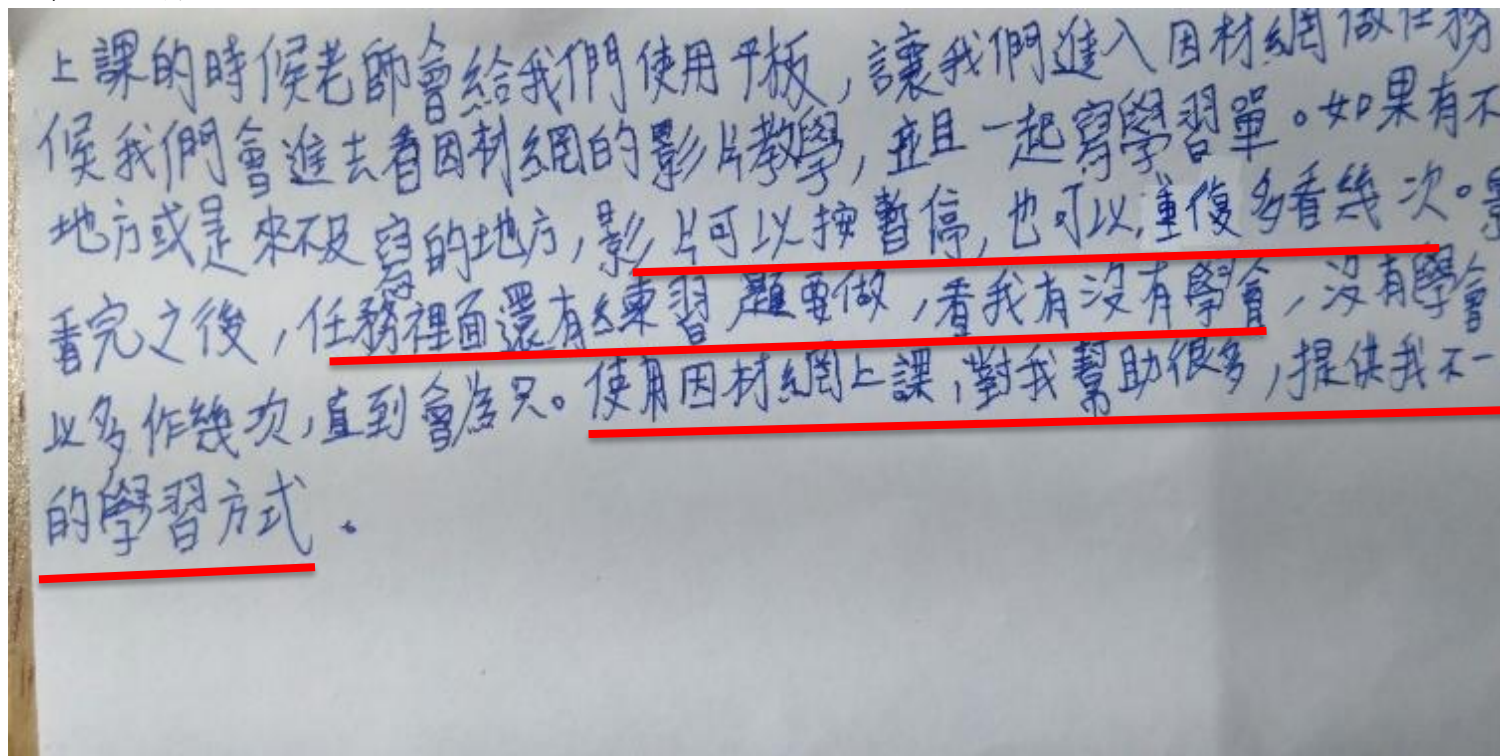 上課的時候老師會給我們使用平板,讓我們進入因材網做任務
候我們會進去看因材網的影片教學,並且一起寫學習單。如果有不
地方或是來不及寫的地方,影片可以按暫停,也可以重復多看幾次。影
看完之後,任務裡面還有練習題要做,看我有沒有學會,沒有學會
以多作幾次,直到會為只。使用因材網上課,對我幫助很多,提供我不一
的學習方式。